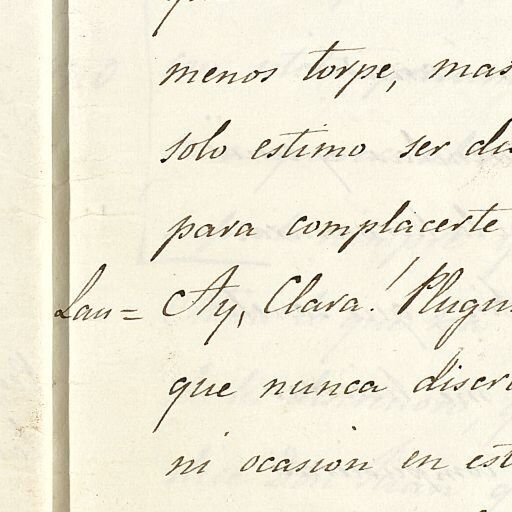 menos torpe, mas
solo estimo ser
para complacerte
Lau= Ay, Clara!
que nunca
ni ocasion en